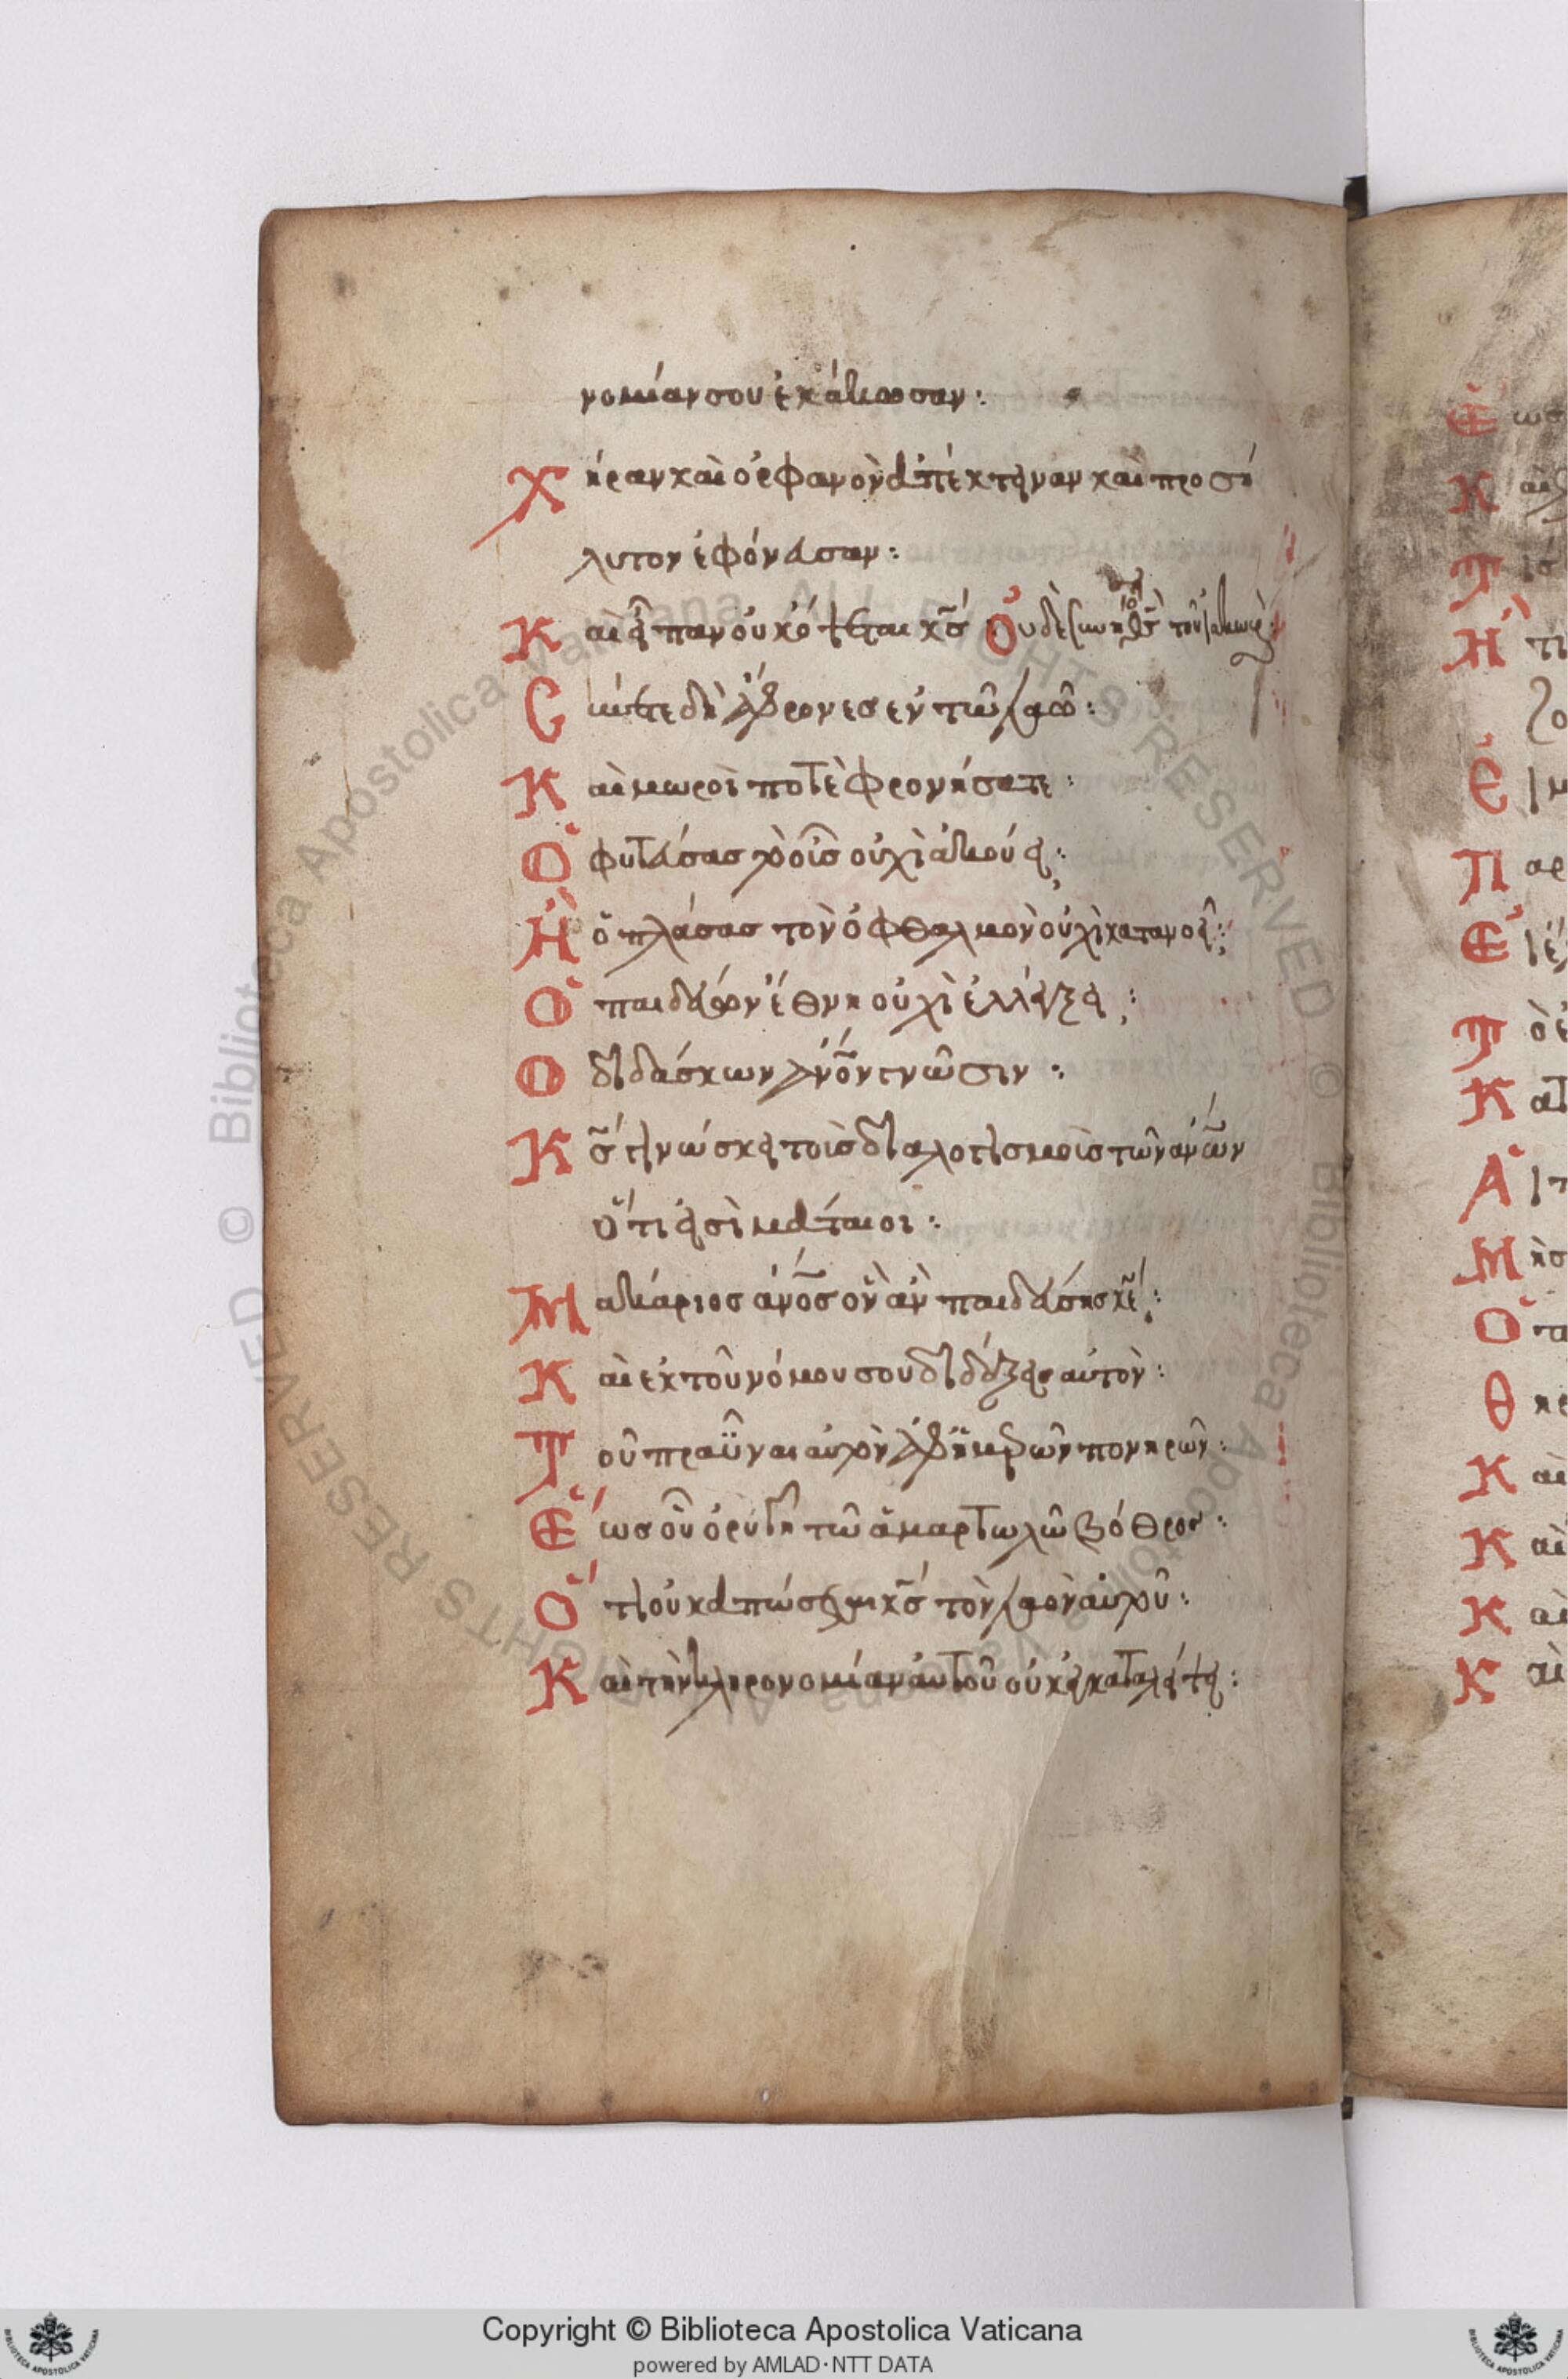 νομίαν σου ἐκάκωσαν:
Χήραν καὶ ὀρφανὸν ἀπέκτειναν καὶ προσή
λυτον ἐφόνευσαν:
Καὶ εἶπαν οὐκ ὄψεται κ̅ς̅ Οὐδὲ συνήσει ὁ θ̅ς̅ τοῦ ἰακώβ:
Σύνετε δὴ ἄφρονες ἐν τῶ λαῶ:
Καὶ μωροὶ ποτὲ φρονήσατε:
Ὁ φυτεύσας τὸ οὖς οὐχὶ ἀκούει;
Ἢ ὁ πλάσας τὸν ὀφθαλμὸν οὐχὶ κατανοεῖ;
Ὁ παιδεύων ἔθνη οὐχὶ ἐλλέγξει;
Ὁ διδάσκων α̅ν̅ο̅ν̅ γνῶσιν:
Κ̅ς̅ γινώσκει τοὶς διαλογισμοὶς τῶν α̅ν̅ω̅ν̅
ὅτι εἰσὶ μάταιοι:
Μακάριος α̅ν̅ο̅ς̅ ὃν ἂν παιδεύσης κ̅ε̅:
Καὶ ἐκ τοῦ νόμου σου διδάξεις αὐτὸν:
Τοῦ πραῢναι αὐτὸν ἀφ' ἡμερῶν πονηρῶν:
Ἕως οὗ ὀρυγῆ τῶ ἁμαρτωλῶ βόθρος:
Ὅτι οὐκ ἀπώσεται κ̅ς̅ τὸν λαὸν αὐτοῦ:
Καὶ τὴν κληρονομίαν αὐτοῦ οὐκ εἰκαταλείψει:
Copyright © Biblioteca Apostolica Vaticana
powered by AMLAD·NTT DATA